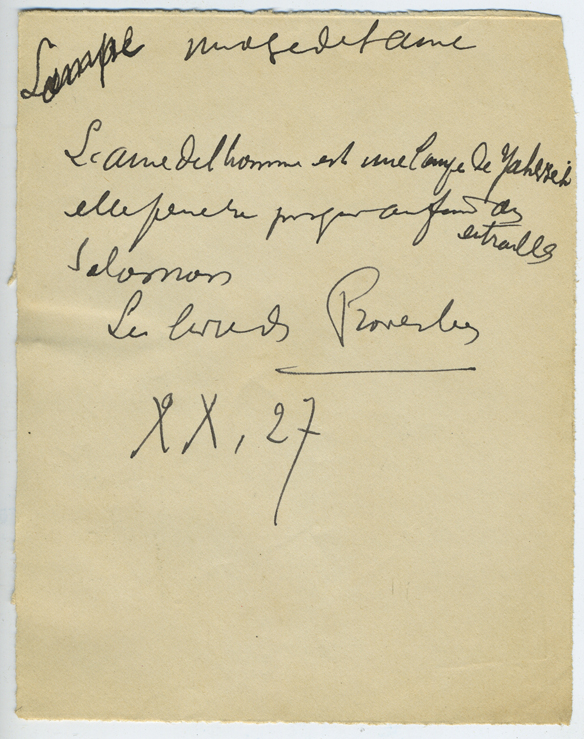 Lampe image de l'ame
L'ame de l'homme est une lampe de Yahweh
elle penetre jusqu'au fond des
entrailles
Salomon
Le livre des Proverbes
XX, 27